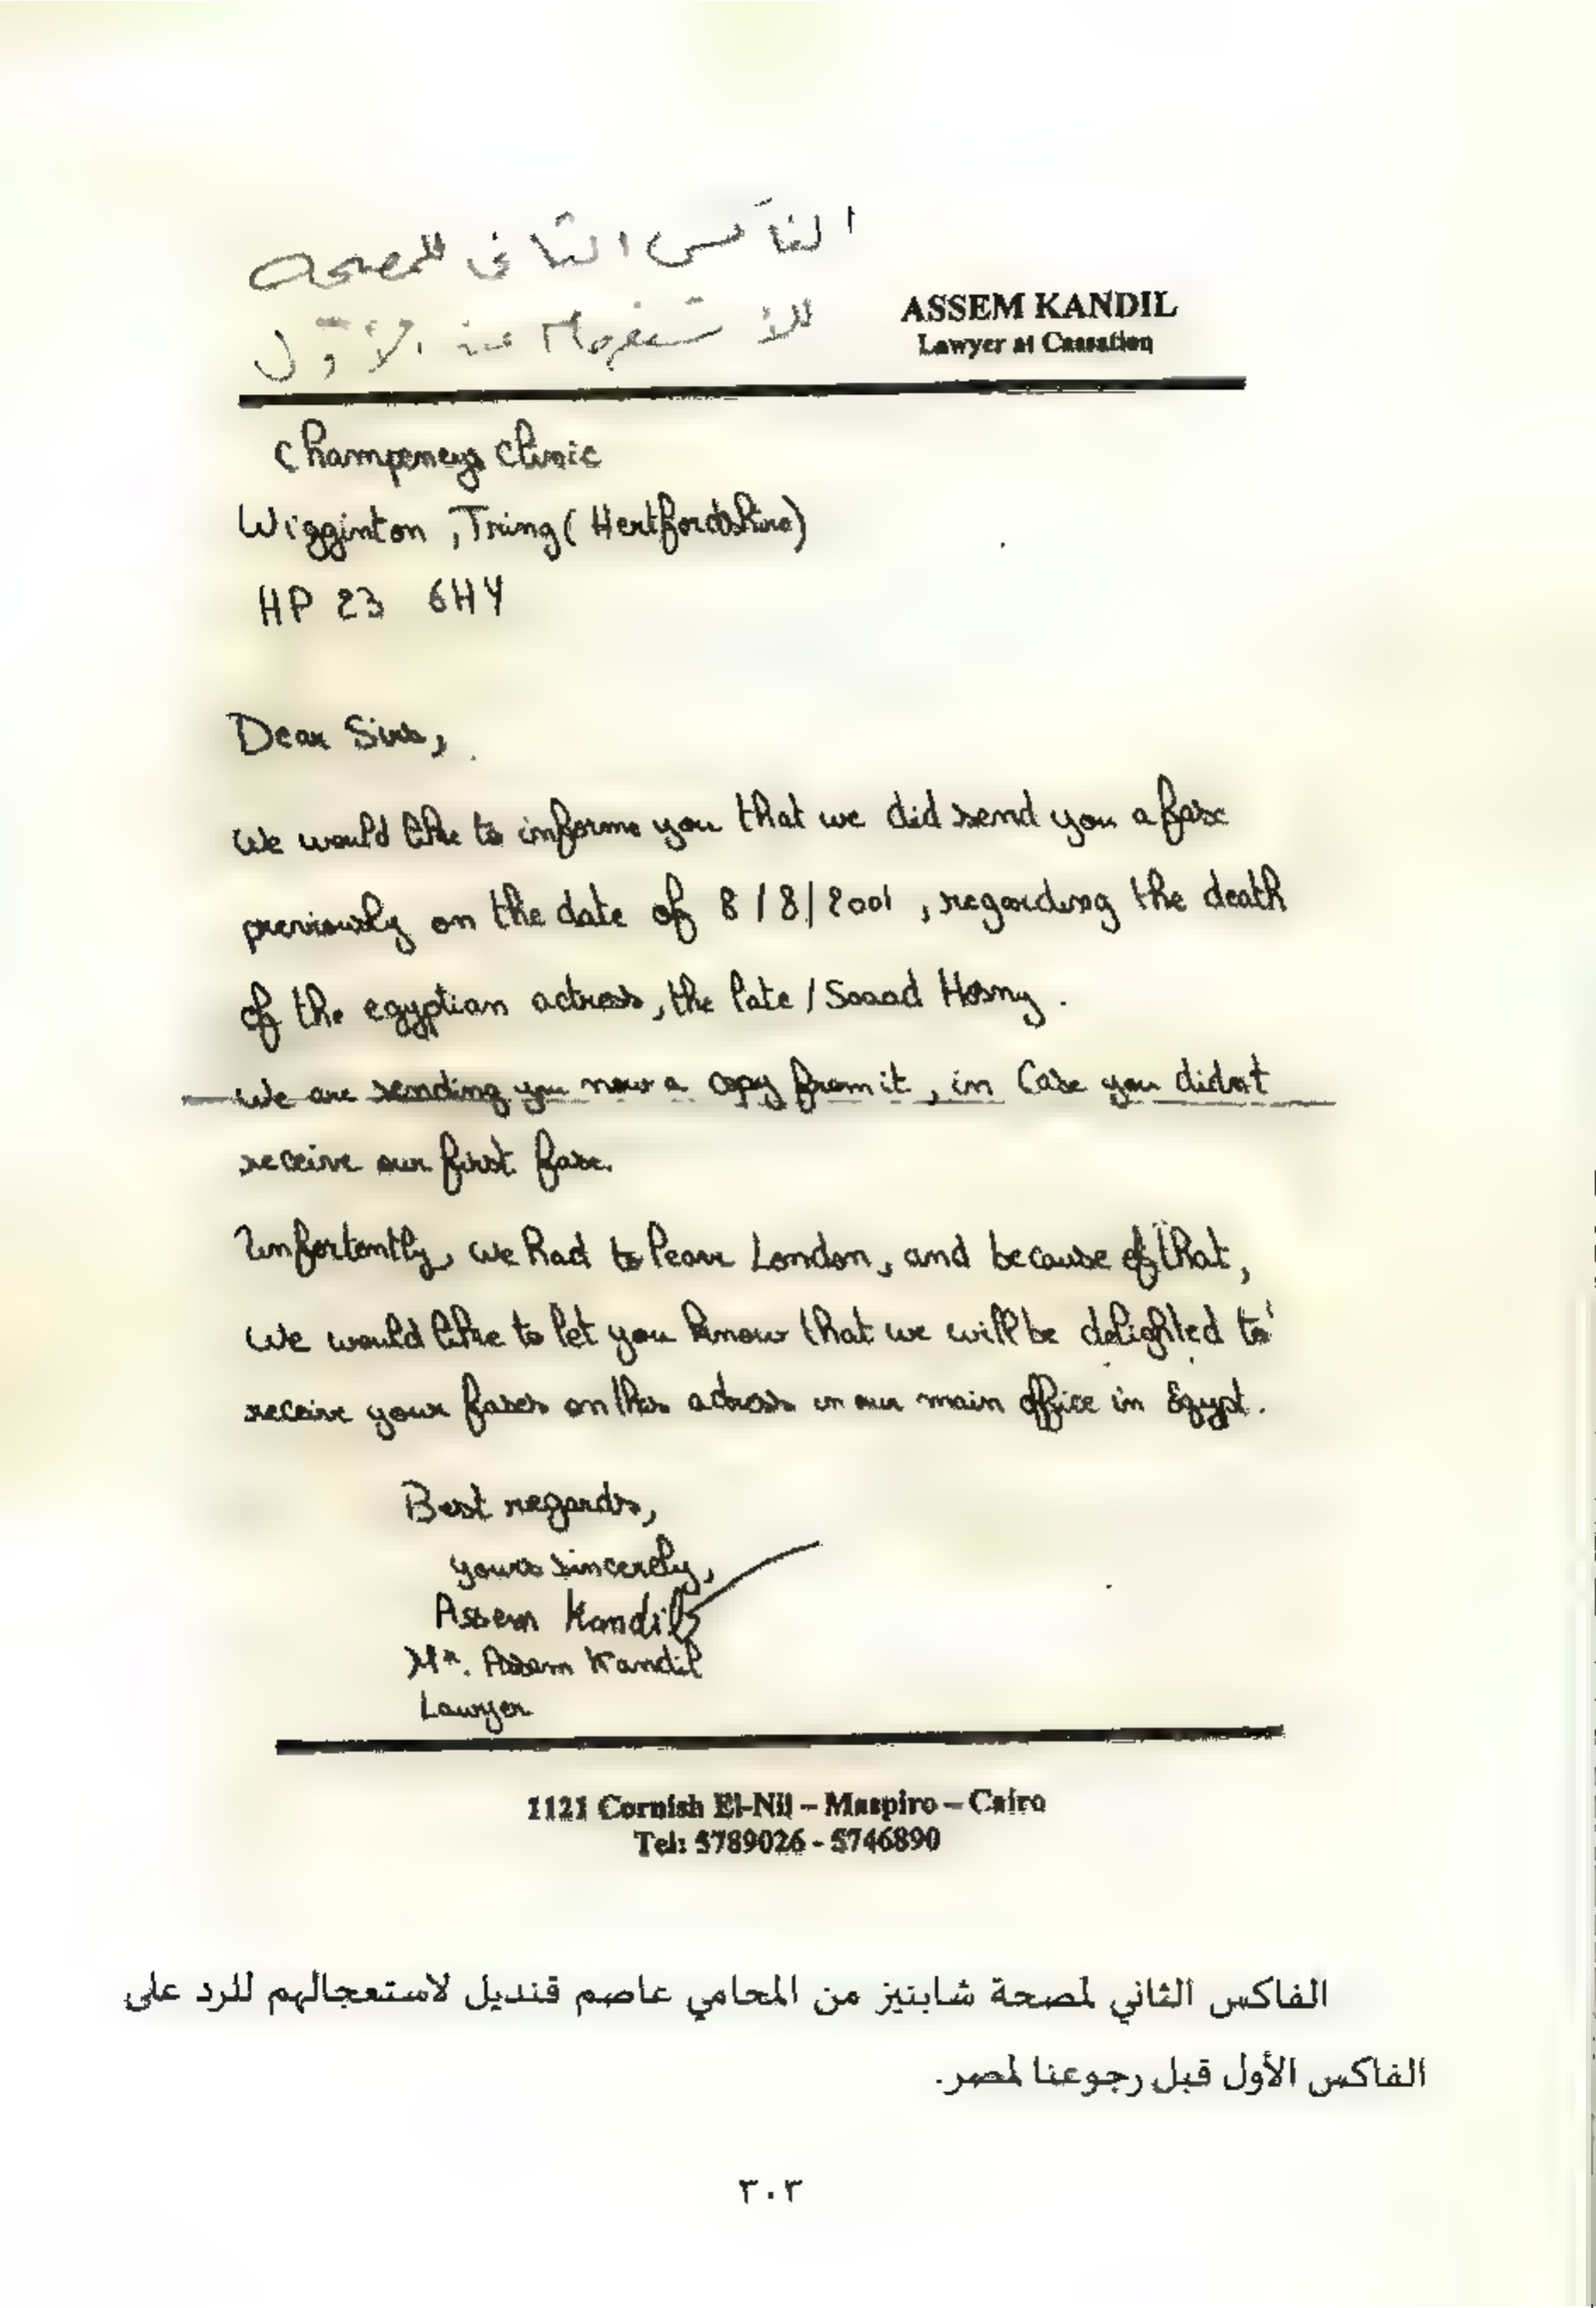 الفاكس الثاني للمصحه
للاستفهام عن الأول
ASSEM KANDIL
Lawyer at Cassation
Champeneys Clinic
Wigginton, Tring (Hertfordshire)
HP 23 6HY
Dear Sirs,
We would like to informe you that we did send you a fax
previously on the date of 8/8/2001, regarding the death
of the egyptian actress, the late / Soaad Hosny.
We are sending you now a copy from it, in case you didn't
receive our first fax.
Unfortently, we had to leave London, and because of that,
we would like to let you know that we will be delighted to
receive your faxes on this adress in our main office in Egypt.
Best regards,
yours sincerely,
Assem Kandil
Mr. Assem Kandil
Lawyer
1121 Cornish El-Nil – Maspiro – Cairo
Tel: 5789026 - 5746890
الفاكس الثاني لمصحة شابنيز من المحامي عاصم قنديل لاستعجالهم للرد على
الفاكس الأول قبل رجوعنا لمصر.
٣٠٣